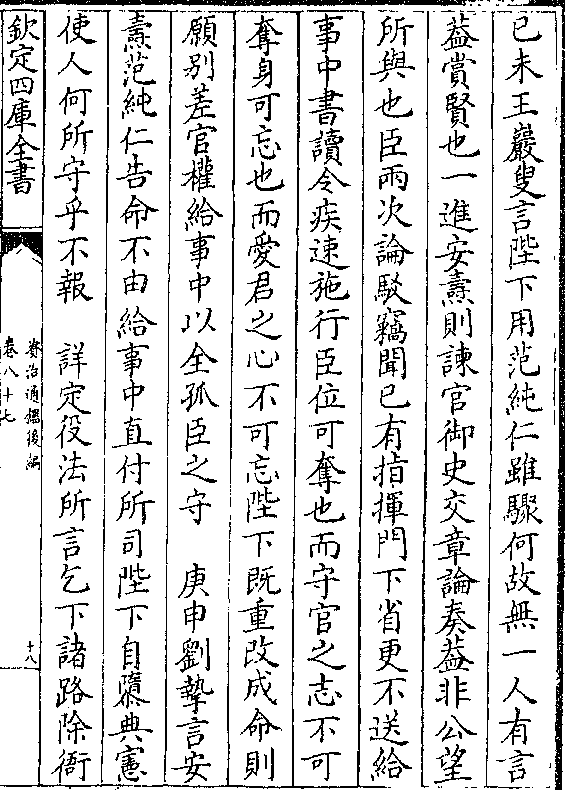 己未王巖叟言陛下用范純仁雖驟何故無一人有言
葢賞賢也一進安燾則諫官御史交章論奏葢非公望
所與也臣兩次論駁竊聞已有指揮門下省更不送給
事中書讀令疾速施行臣位可奪也而守官之志不可
奪身可忘也而愛君之心不可忘陛下既重改成命則
願别差官權給事中以全孤臣之守　庚申劉摯言安
燾范純仁告命不由給事中直付所司陛下自隳典憲
使人何所守乎不報　詳定役法所言乞下諸路除衙
欽定四庫全書
資治通鑑後編
卷八十七
十八